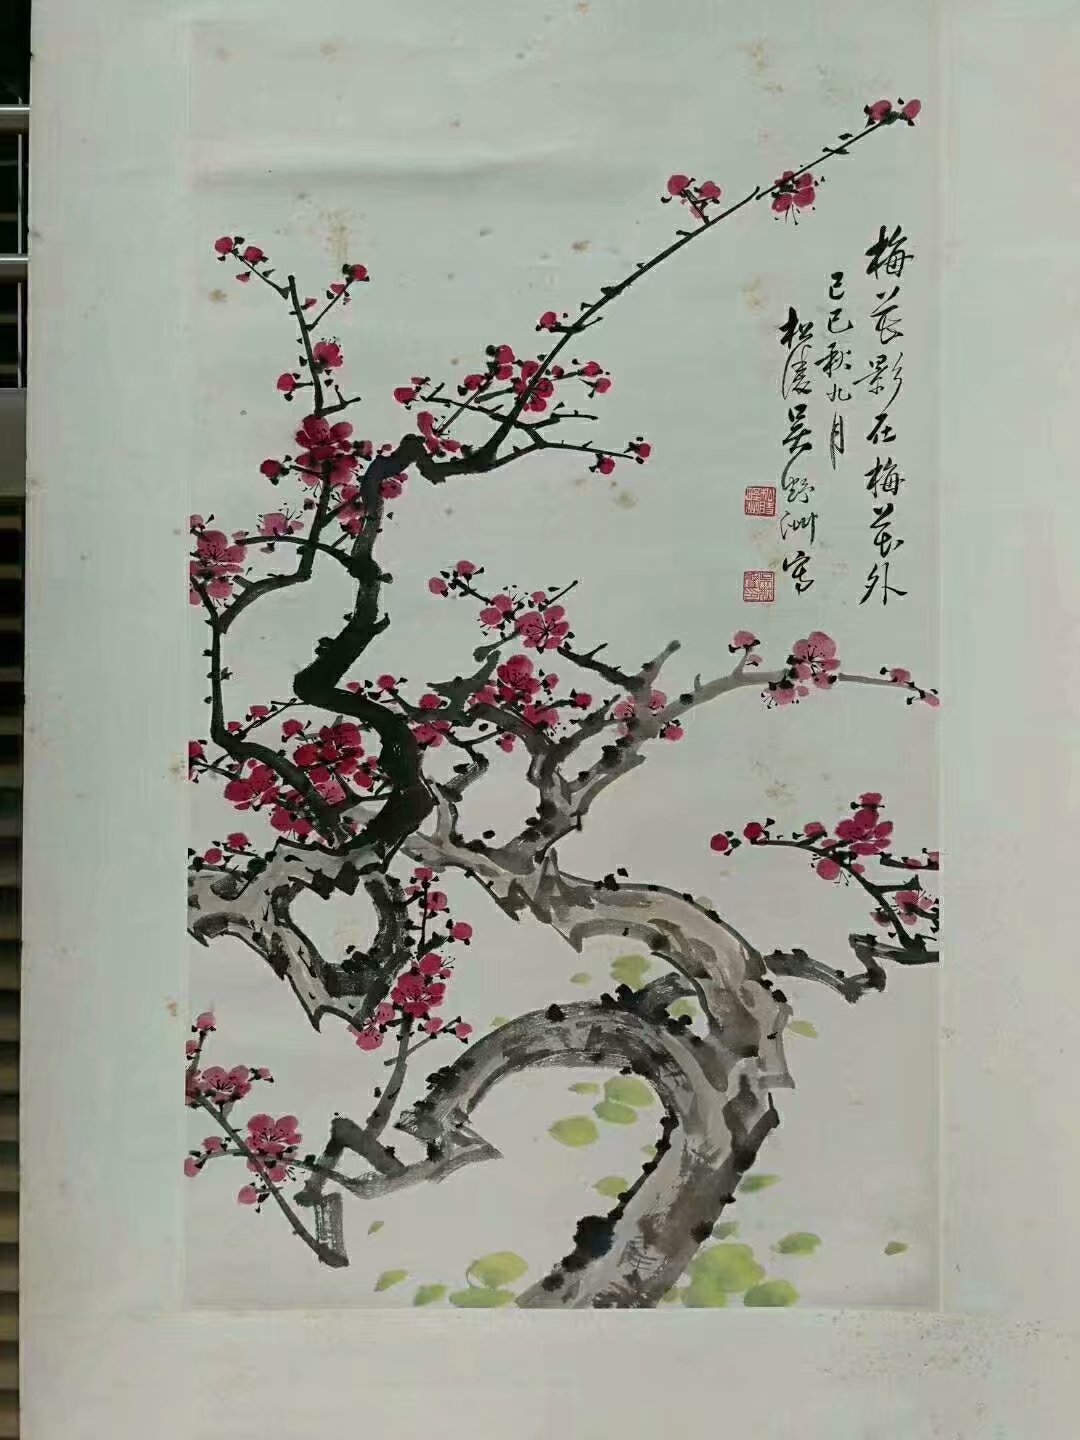 梅花影在梅花外
己巳秋九月
松陵吴野洲写